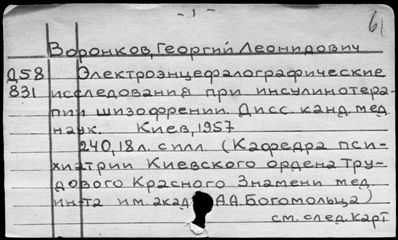 - 1 -
61
Воронков, Георгий Леонидович
Д58 Электроэнцефалографические
831 исследования при инсулинотера-
пии шизофрении. Дисс. канд. мед.
наук. Киев, 1957
240, 18 л. с илл. (Кафедра пси-
хиатрии Киевского ордена Тру-
дового Красного Знамени мед.
ин-та им. акад. А.А. Богомольца)
см. след. карт